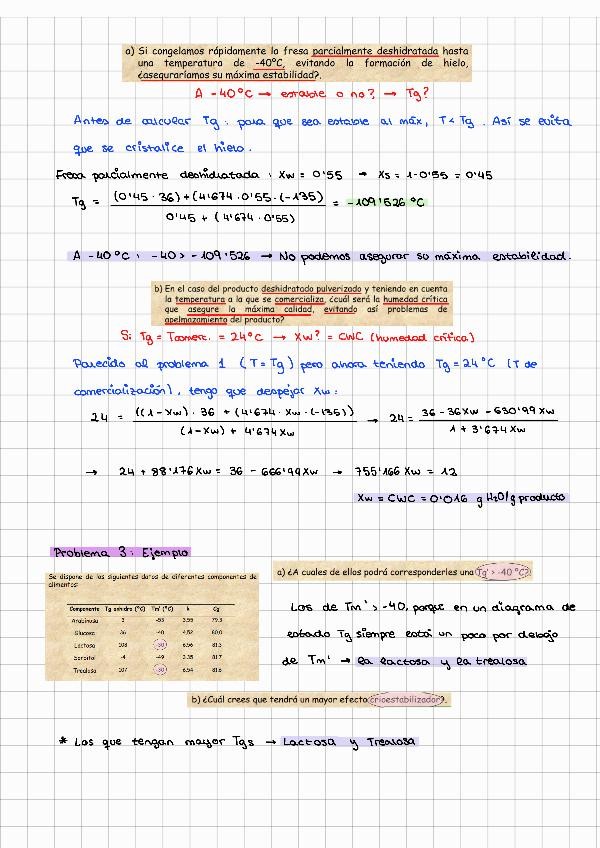 a) Si congelamos rápidamente la fresa parcialmente deshidratada hasta
una temperatura de -40ºC, evitando la formación de hielo,
¿aseguraríamos su máxima estabilidad?.
A -40°C → estable o no? → Tg?
Antes de calcular Tg: para que sea estable al máx, T < Tg. Así se evita
que se cristalice el hielo.
Fresa parcialmente deshidratada: Xw = 0'55 → Xs = 1-0'55 = 0'45
Tg = (0'45 · 36) + (4'674 · 0'55 · (-135)) / 0'45 + (4'674 · 0'55) = -109'526 °C
A -40°C, -40 > -109'526 → No podemos asegurar su máxima estabilidad.
b) En el caso del producto deshidratado pulverizado y teniendo en cuenta
la temperatura a la que se comercializa, ¿cuál será la humedad crítica
que asegure la máxima calidad, evitando así problemas de
apelmazamiento del producto?
Si Tg = Tcomerc. = 24°C → Xw? = CWC (humedad crítica)
Parecido al problema 1 (T = Tg) pero ahora teniendo Tg = 24°C (T de
comercialización), tengo que despejar Xw:
24 = ((1-Xw) · 36 + (4'674 · Xw · (-135)) / (1-Xw) + 4'674 Xw → 24 = 36 - 36Xw - 630'99 Xw / 1 + 3'674 Xw
→ 24 + 88'176 Xw = 36 - 666'99 Xw → 755'166 Xw = 12
Xw = CWC = 0'016 g H2O/g producto
Problema 3: Ejemplo
Se dispone de los siguientes datos de diferentes componentes de
alimentos:
Componente Tg anhidro (ºC) Tm' (ºC) k Cg'
Arabinosa 3 -53 3.55 79.3
Glucosa 36 -40 4.52 80.0
Lactosa 108 -30 6.56 81.3
Sorbitol -4 -49 3.35 81.7
Trealosa 107 -30 6.54 81.6
a) ¿A cuales de ellos podrá corresponderles una Tg' > -40 ºC?
Los de Tm' > -40, porque en un diagrama de
estado Tg siempre está un poco por debajo
de Tm' → la lactosa y la trealosa
b) ¿Cuál crees que tendrá un mayor efecto crioestabilizador?.
* Los que tengan mayor Tgs → Lactosa y Trealosa